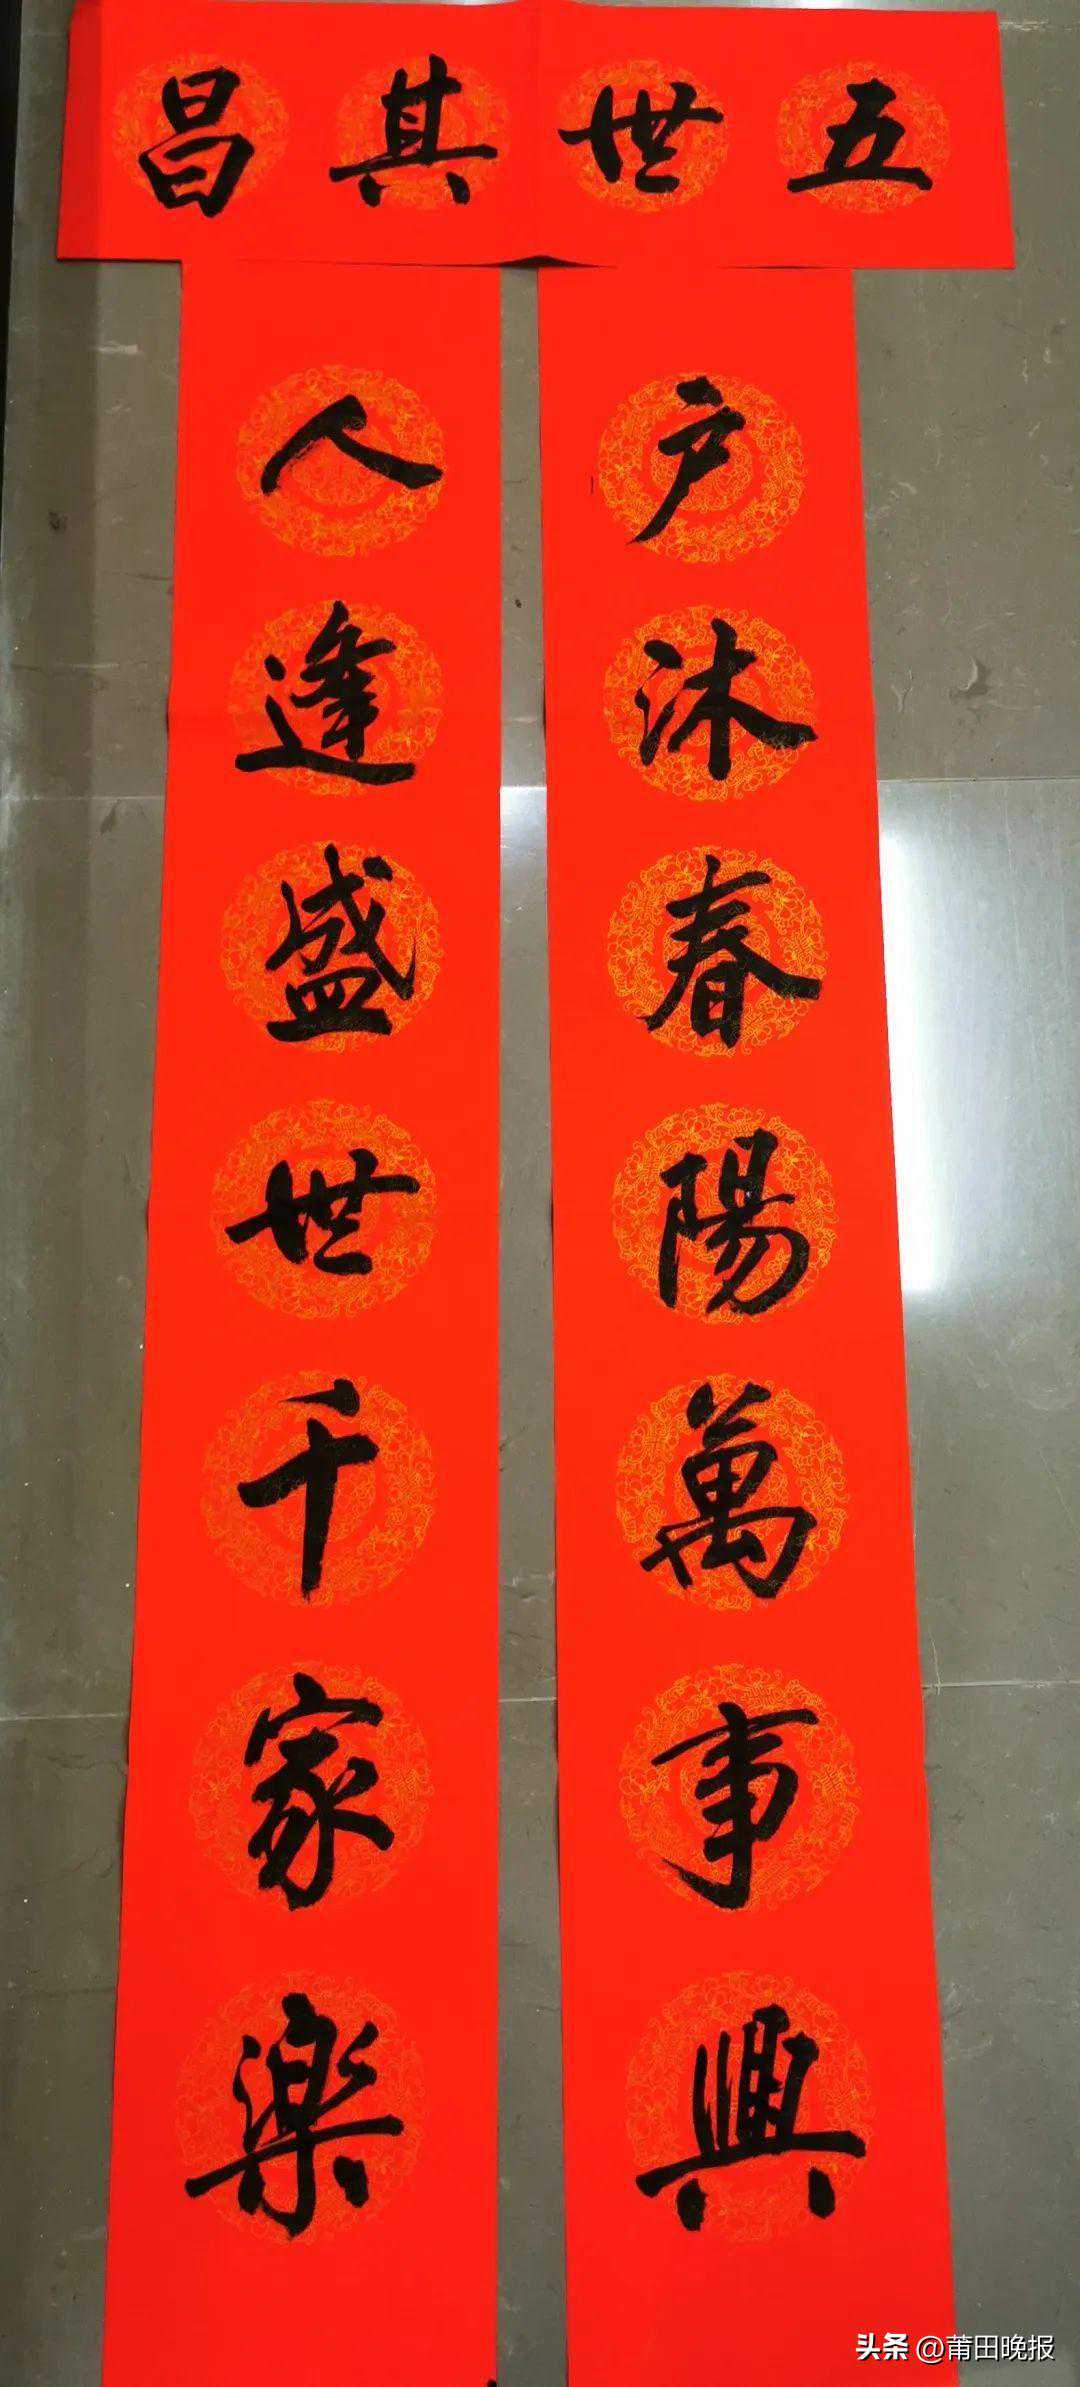 五世其昌
户沐春陽萬事興
人逢盛世千家樂
头条 @莆田晚报